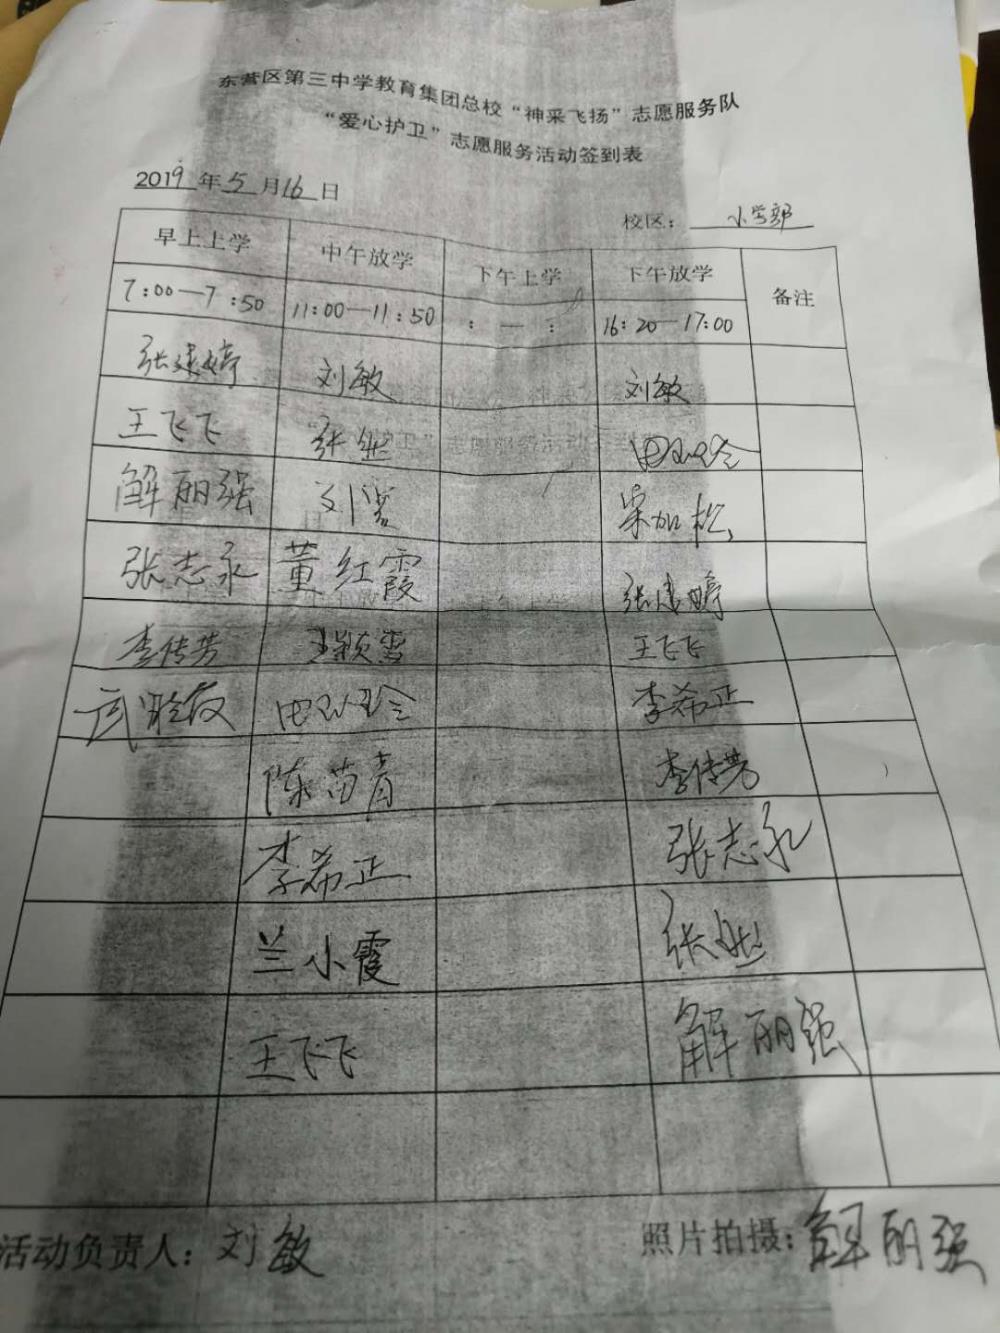 东营区第三中学教育集团总校“神采飞扬”志愿服务队
“爱心护卫”志愿服务活动签到表
2019年5月16日
校区：小学部
早上上学 中午放学 下午上学 下午放学 备注
7:00—7:50 11:00—11:50 : — : 16:20—17:00
张建婷 刘敏 刘敏
王飞飞 张
解丽强 刘 宋加松
张志永 董红霞 张建婷
李传芳 王颖雪 王飞飞
武 李希正
陈苗青 李传芳
李希正 张志永
兰小霞 张
王飞飞 解丽强
活动负责人：刘敏 照片拍摄：解丽强